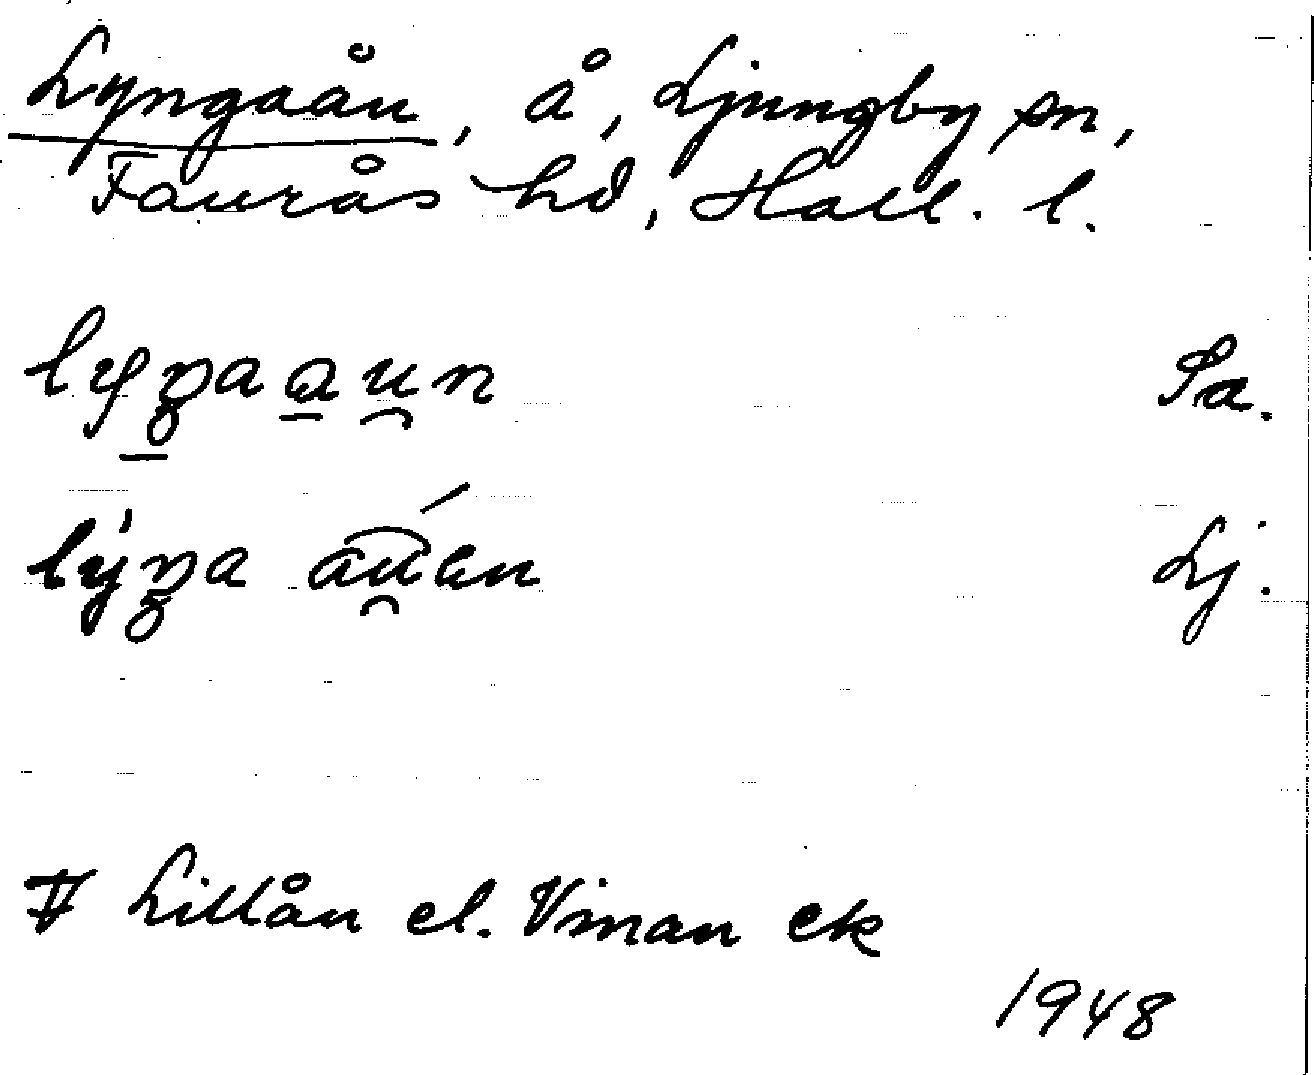 Lyngaån, å, Ljungby sn,
Faurås hd, Hall. l.
lyŋaau̯n Sa.
lýŋa au̯án Lj.
Lillån el. Vinan ek
1948